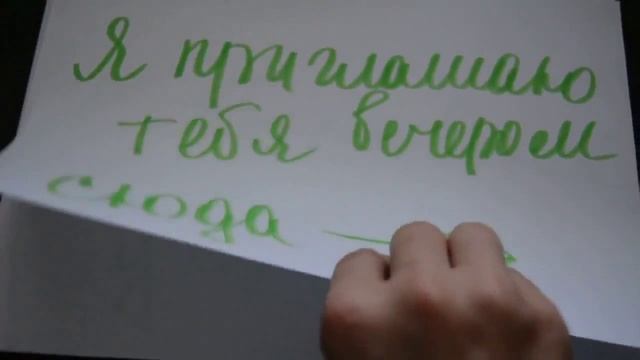 Я приглашаю
тебя вечером
сюда